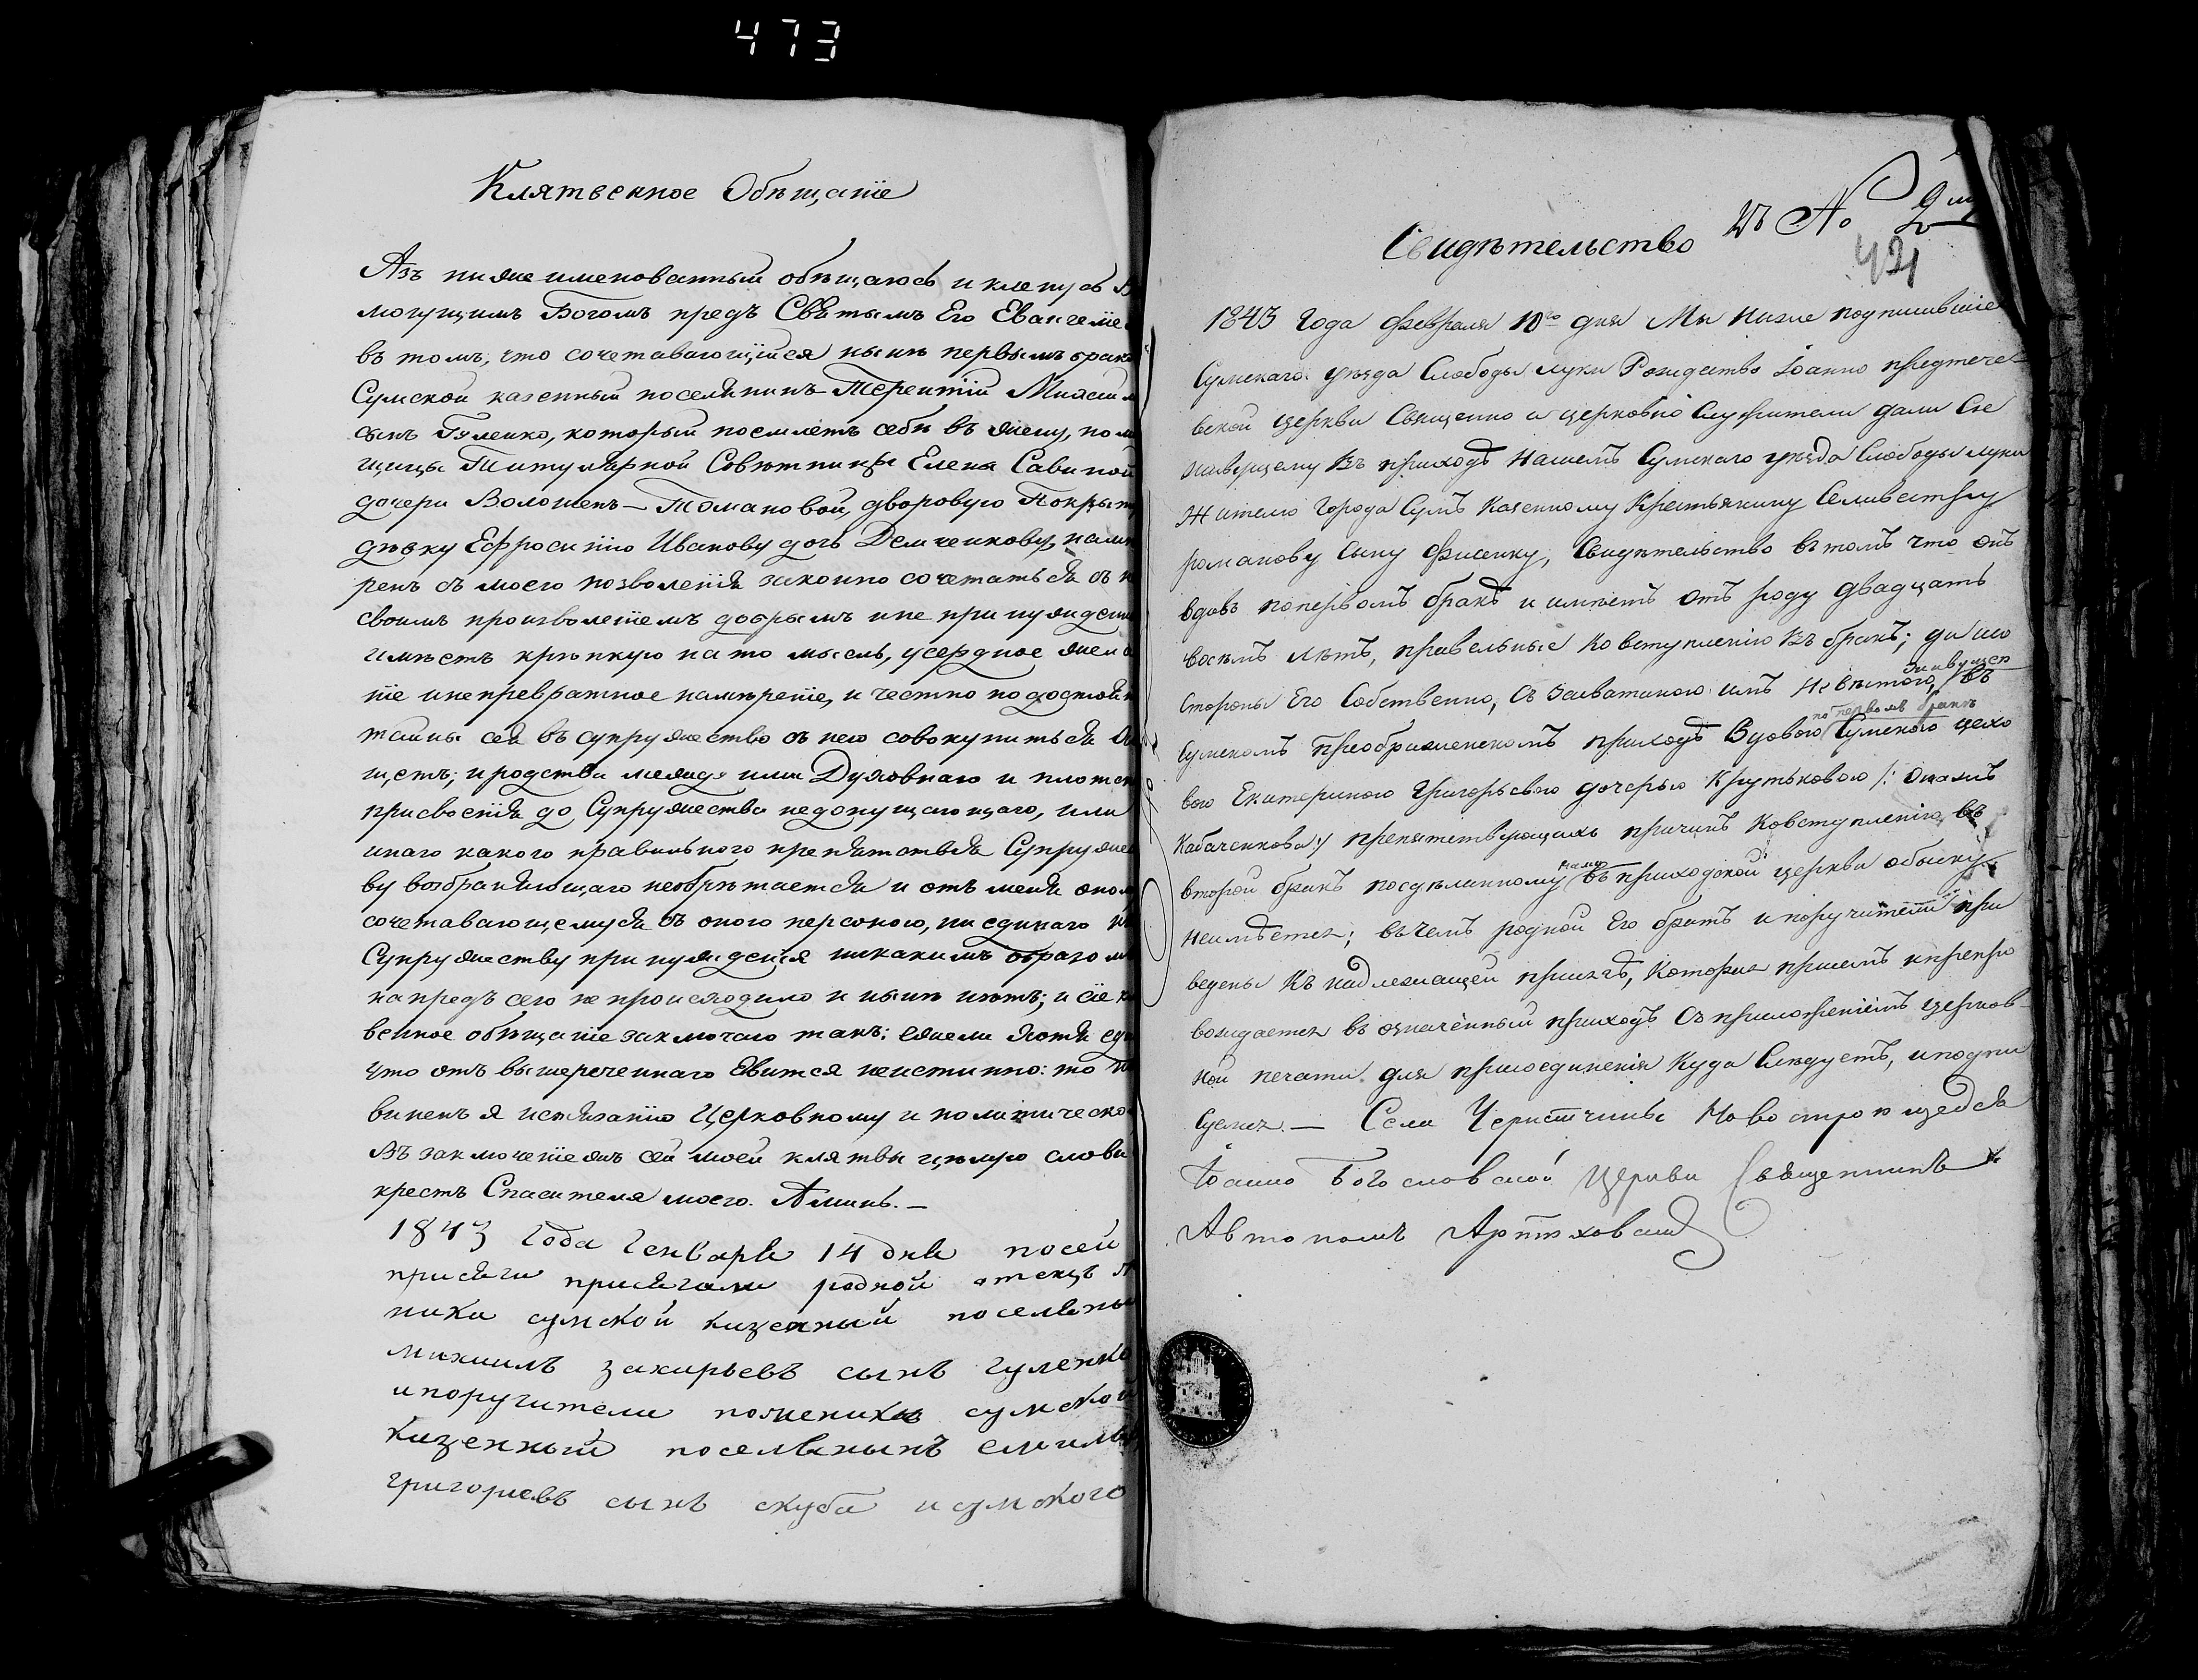 473
Клятвенное Обѣщаніе
Азъ нижеименованный обѣщаюсь и кленусь В
могущимъ Богомъ предъ Свѣтымъ Его Евангеліе
въ томъ, что сочетавающійся нынѣ первымъ брако
Сумской казенный поселянинъ Терентій Михаил
сынъ Гуленко, который поемлетъ себѣ въ жену, пом
щицы Титулярной Совѣтницы Елены Савиной
дочери Волошенъ-Томановой, дворовую Покрыт
дѣвку Ефросинію Иванову дочь Демченкову, намѣ
ренъ съ моего позволенія законно сочетаться съ н
своимъ произволеніемъ добрымъ и не принужденн
имѣетъ крѣпкую на то мысль, усердное жела
ніе и непревратное намѣреніе, и честно по достоин
тайны сея въ супружество съ нею совокупиться
щетъ; и родства между ими Духовнаго и плотск
присвоенія до Супружества недопущающаго, или
инаго какого правильного препятствія Супружес
ву возбраняющаго необрѣтается и отъ меня оном
сочетавающемуся съ оною персоною, ни единаго
Супружеству принужденія никакимъ образом
напредъ сего не происходило и нынѣ нѣтъ; и сіе к
венное обѣщаніе заключаю такъ: ежели хотя ед
что отъ вышереченнаго Евится неистинно: то
виненъ я истязанію Церковному и политическо
Въ заключеніежъ сей моей клятвы цѣлую слова
крестъ Спасителя моего. Аминь.—
1843 Года Генваря 14 дня посей
присяги присягали родной отецъ
ниха сумской казенный поселяны
михаилъ захарьевъ сынъ гуленко
и поручители по женихѣ сумской
казенный поселянынъ
григориевъ сынъ скуба и сумского
Свидѣтельство
Къ No 2
421
1843 Года февраля 10го дня Мы ниже подписавшіе
Сумскаго уѣзда Слободы луки Рождество Іоанно предтече-
вской церкви Священно и церковно Служители дали Сіе
живущему въ приходѣ нашемъ Сумскаго уѣзда Слободы луки
Жителю города Сумъ казенному Крестьянину Селиверстру
романову Сыну Фисенку, Свидѣтельство въ томъ что онъ
вдовъ по первомъ бракѣ и имѣетъ отъ роду двадцать
восьмъ лѣтъ, правельные ко вступленію въ бракъ; да и со
живущею
стороны Его Собственно, съ засватаною имъ невѣстою, въ
по первомъ бракѣ
Сумскомъ преображенскомъ приходѣ Вдовою Сумскою цехо
вою Екатериною Григорьевою дочерью Крутьковою /: Она жъ
Кабаченкова:/ препятствующихъ причинъ ко вступленію въ
нами
второй бракъ по сдѣланному въ приходской церкви обыску
неимѣется; въ чемъ родной Его братъ и поручители при
ведены къ надлежащей присягѣ, которая присемъ и препро
вождается въ означенный приходъ съ приложеніемъ церков-
ной печати для присоединенія куда Слѣдуетъ, и подпи
суемся.— Села Чернетчины Новостроющейся
Іоанно Богословской Церкви Священникъ
Автономъ